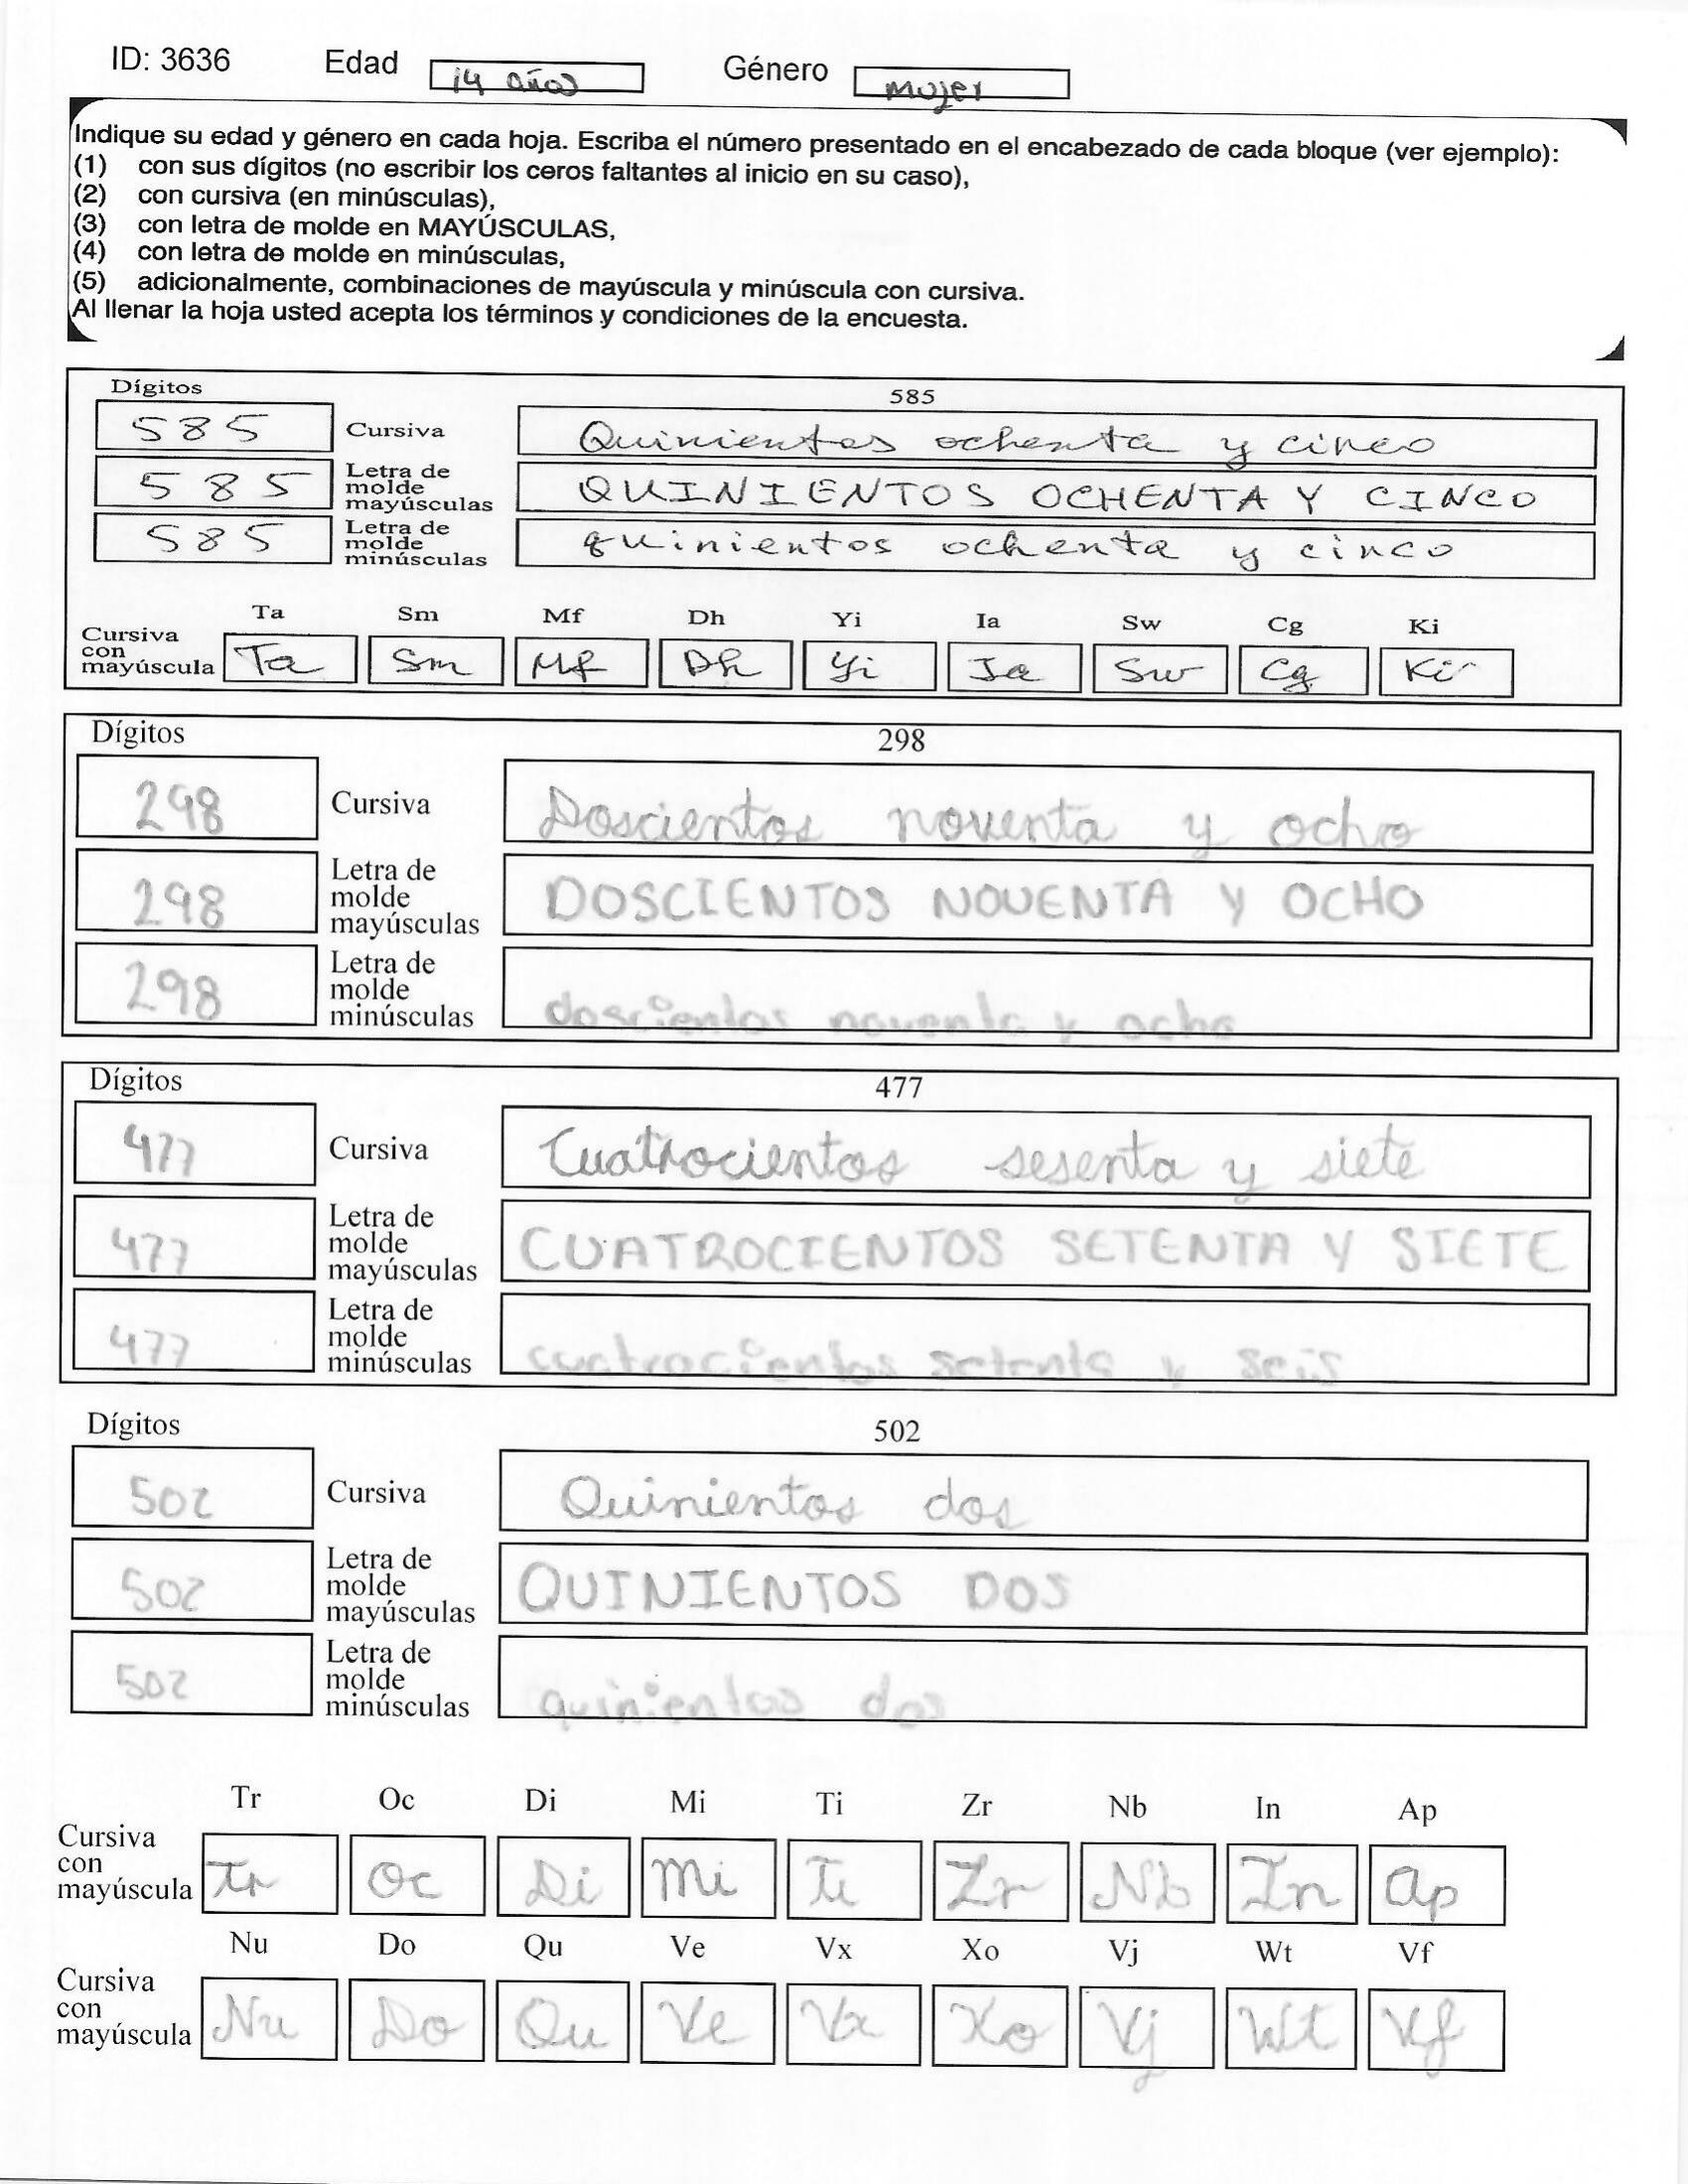 ID: 3636 Edad 14 años Género mujer
Indique su edad y género en cada hoja. Escriba el número presentado en el encabezado de cada bloque (ver ejemplo):
(1) con sus dígitos (no escribir los ceros faltantes al inicio en su caso),
(2) con cursiva (en minúsculas),
(3) con letra de molde en MAYÚSCULAS,
(4) con letra de molde en minúsculas,
(5) adicionalmente, combinaciones de mayúscula y minúscula con cursiva.
Al llenar la hoja usted acepta los términos y condiciones de la encuesta.
Dígitos 585
585 Cursiva Quinientos ochenta y cinco
585 Letra de molde mayúsculas QUINIENTOS OCHENTA Y CINCO
585 Letra de molde minúsculas quinientos ochenta y cinco
Ta Sm Mf Dh Yi Ia Sw Cg Ki
Cursiva con mayúscula Ta Sm Mf Dh Yi Ia Sw Cg Ki
Dígitos 298
298 Cursiva Doscientos noventa y ocho
298 Letra de molde mayúsculas DOSCIENTOS NOVENTA Y OCHO
298 Letra de molde minúsculas doscientos noventa y ocho
Dígitos 477
477 Cursiva Cuatrocientos sesenta y siete
477 Letra de molde mayúsculas CUATROCIENTOS SETENTA Y SIETE
477 Letra de molde minúsculas cuatrocientos setenta y seis
Dígitos 502
502 Cursiva Quinientos dos
502 Letra de molde mayúsculas QUINIENTOS DOS
502 Letra de molde minúsculas quinientos dos
Tr Oc Di Mi Ti Zr Nb In Ap
Cursiva con mayúscula Tr Oc Di Mi Ti Zr Nb In Ap
Nu Do Qu Ve Vx Xo Vj Wt Vf
Cursiva con mayúscula Nu Do Qu Ve Vx Xo Vj Wt Vf